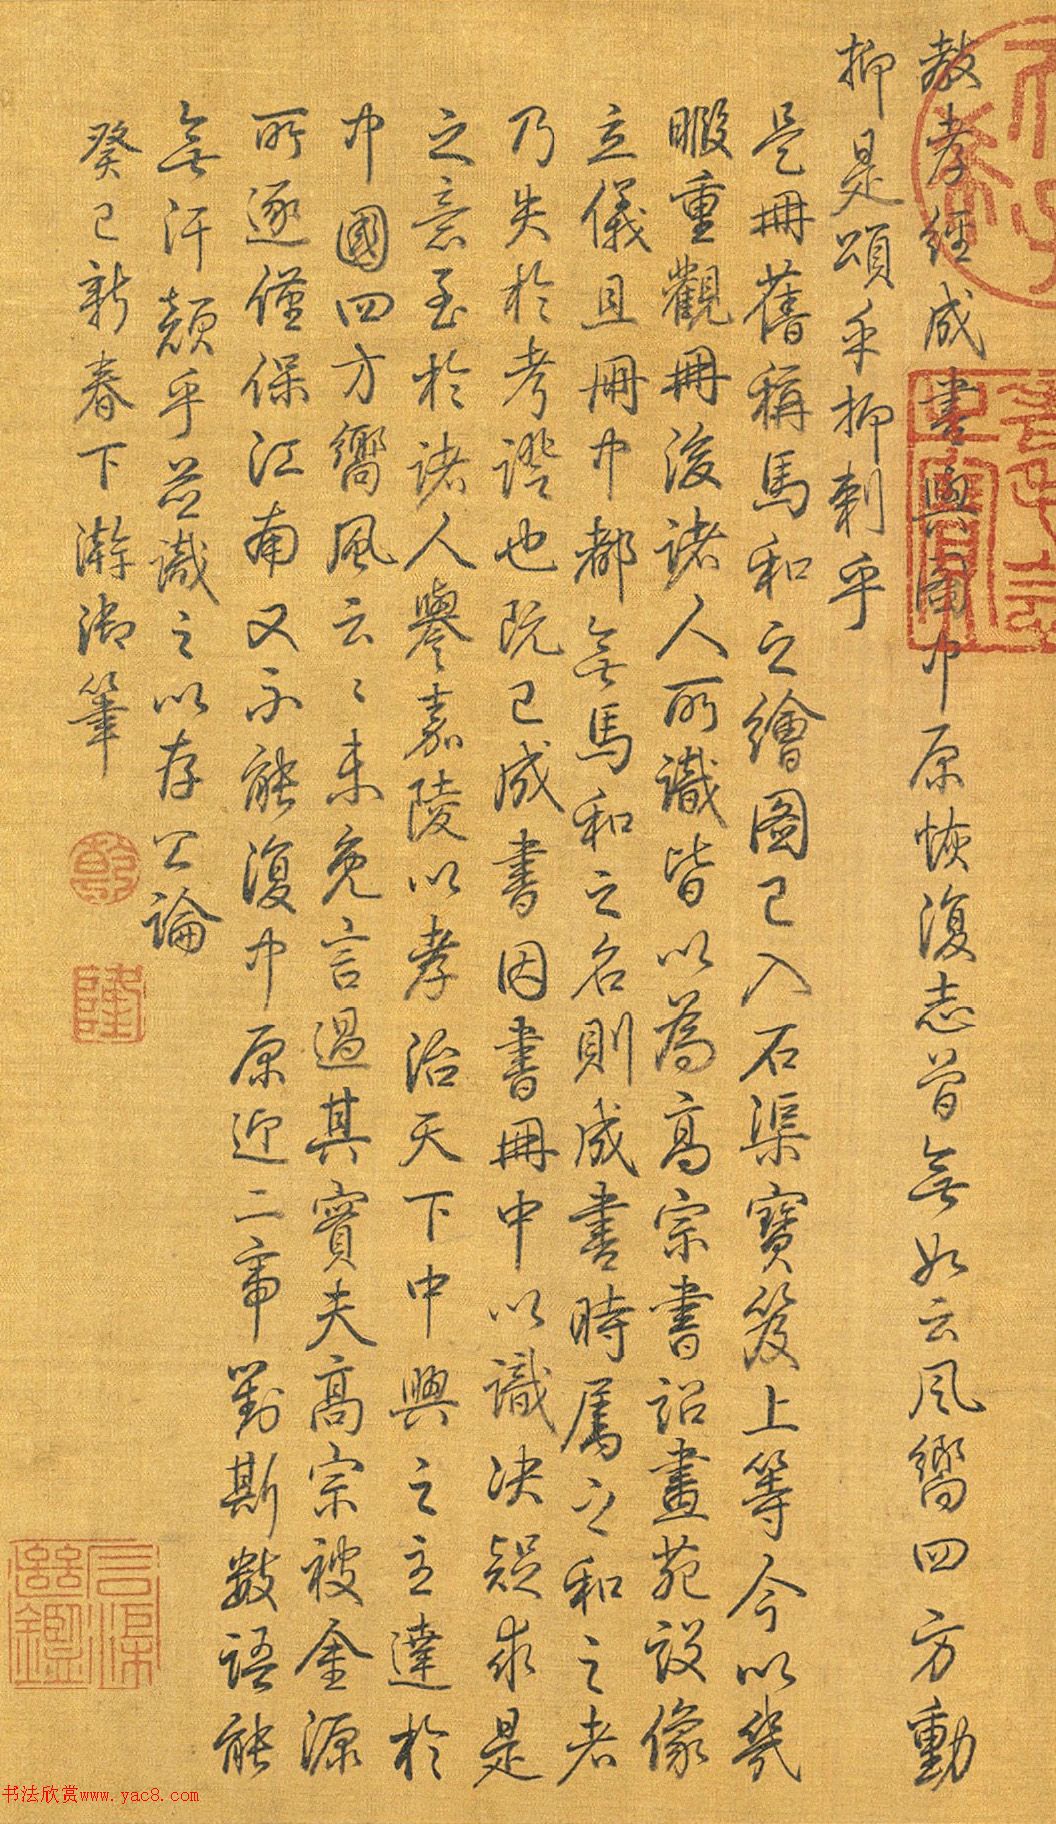 教孝經成書與圖中原恢復志曾無如云風嚮四方動
抑是頌乎抑刺乎
是冊舊稱馬和之繪圖已入石渠寶笈上等今以幾
暇重觀冊後諸人所識皆以為高宗書詔畫苑設像
立儀且冊中都無馬和之名則成書時屬之和之者
乃失於考證也既已成書因書冊中以識決疑求是
之意至於諸人譽嘉陵以孝治天下中興之主達於
中國四方嚮風云〻未免言過其實夫高宗被金源
所逐僅保江南又不能復中原迎二帝對斯數語能
無汗顏乎並識之以存公論
癸巳新春下澣御筆
乾
隆
書法欣赏www.yac8.com